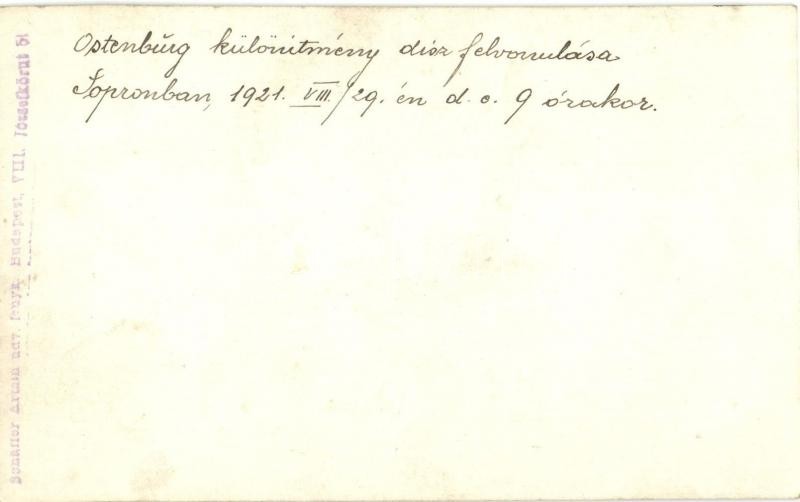 Ostenbŭrg különitmény disz felvonulása
Sopronban, 1921. VIII./29. én d. e. 9 órakor.
Schäffer Ármin udv. fényk. Budapest, VIII. Józsefkörut 5